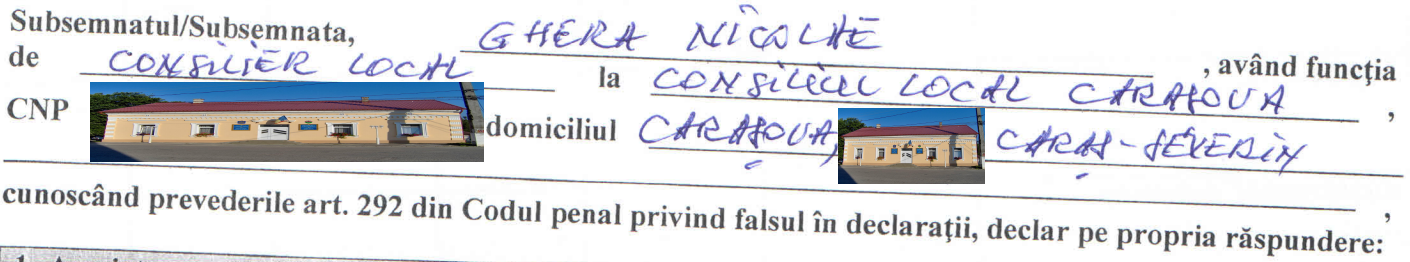 Subsemnatul/Subsemnata, GHERA NICOLAE , având funcția
de CONSILIER LOCAL la CONSILIUL LOCAL CARAȘOVA ,
CNP domiciliul CARAȘOVA, CARAȘ-SEVERIN
,
cunoscând prevederile art. 292 din Codul penal privind falsul în declarații, declar pe propria răspundere: